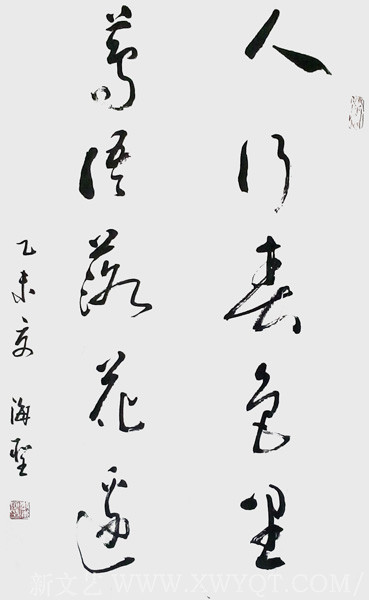 人行春色里
莺語落花邊
乙未夏 海聖
新文艺 WWW.XWYQT.COM/